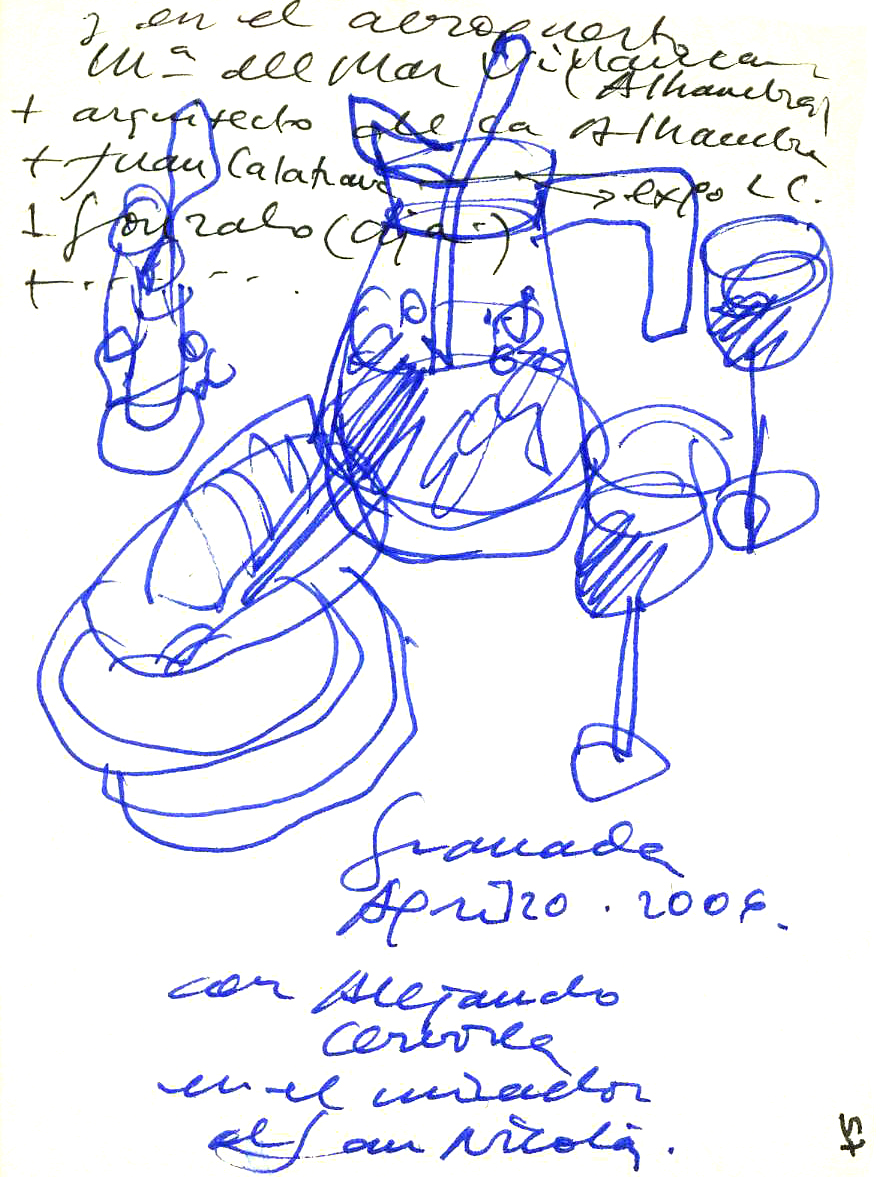 y en el aeropuerto
Mª del Mar (Alhambra)
+ arquitecto de la Alhambra
+ Juan Calatrava → expo LC.
1 Gonzalo
+ . . . . .
Granada
April 20 . 2006.
con Alejandro
en el mirador
de San Nicolás.